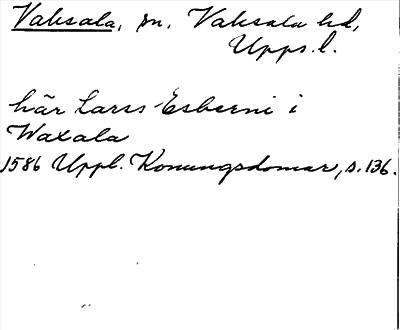 Vaksala, sn. Vaksala hd,
Upps. l.
här Larss Esberni i
Waxala
1586 Uppl. Konungsdomar, s. 136.